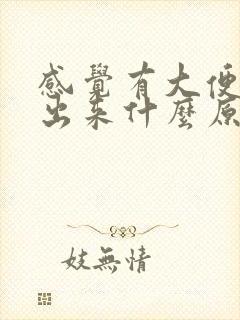 感覺有大便
出來什麼原
妓無情